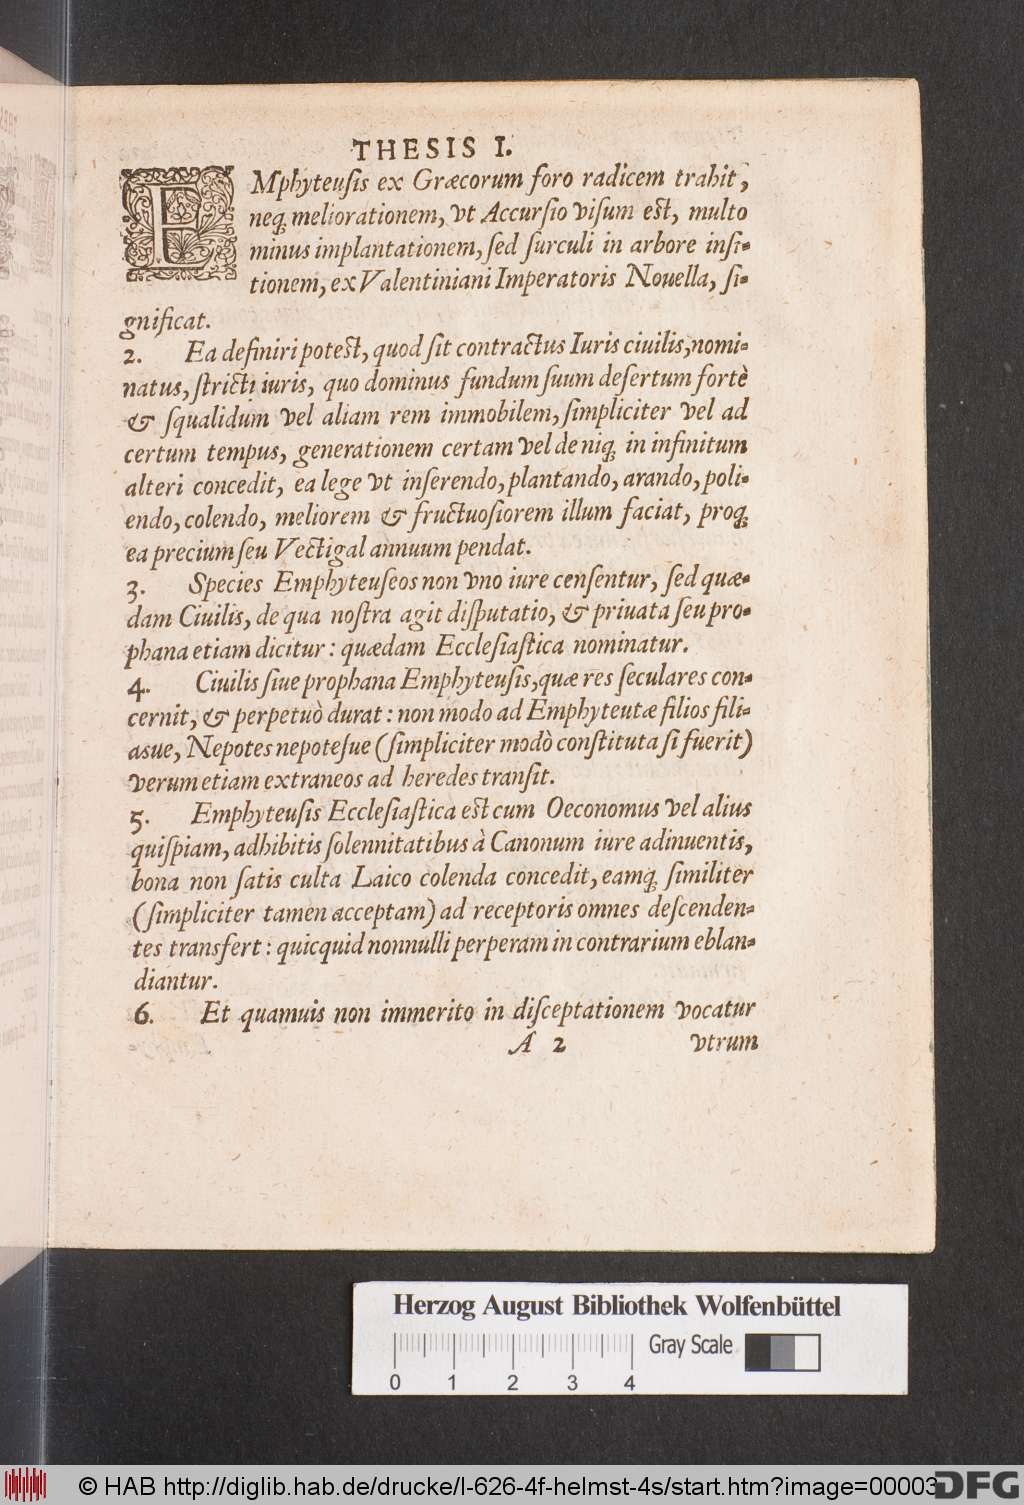 THESIS I.
EMphyteuſis ex Græcorum foro radicem trahit,
neq; meliorationem, vt Accurſio viſum est, multo
minus implantationem, ſed ſurculi in arbore inſi-
tionem, ex Valentiniani Imperatoris Nouella, ſi-
gnificat.
2. Ea definiri potest, quod ſit contractus Iuris ciuilis, nomi-
natus, ſtricti iuris, quo dominus fundum ſuum deſertum fortè
& ſqualidum vel aliam rem immobilem, ſimpliciter vel ad
certum tempus, generationem certam vel deniq; in infinitum
alteri concedit, ea lege vt inſerendo, plantando, arando, poli-
endo, colendo, meliorem & fructuoſiorem illum faciat, proq;
ea precium ſeu Vectigal annuum pendat.
3. Species Emphyteuſeos non vno iure cenſentur, ſed quæ-
dam Ciuilis, de qua noſtra agit diſputatio, & priuata ſeu pro-
phana etiam dicitur: quædam Eccleſiaſtica nominatur.
4. Ciuilis ſiue prophana Emphyteuſis, quæ res ſeculares con-
cernit, & perpetuò durat: non modo ad Emphyteutæ filios fili-
asue, Nepotes nepoteſue (ſimpliciter modò conſtituta ſi fuerit)
verum etiam extraneos ad heredes tranſit.
5. Emphyteuſis Eccleſiaſtica est cum Oeconomus vel alius
quiſpiam, adhibitis ſolennitatibus à Canonum iure adinuentis,
bona non ſatis culta Laico colenda concedit, eamq; ſimiliter
(ſimpliciter tamen acceptam) ad receptoris omnes deſcenden-
tes transfert: quicquid nonnulli perperam in contrarium eblan-
diantur.
6. Et quamuis non immerito in diſceptationem vocatur
A 2 vtrum
Herzog August Bibliothek Wolfenbüttel
Gray Scale
0 1 2 3 4
© HAB http://diglib.hab.de/drucke/l-626-4f-helmst-4s/start.htm?image=00003
DFG